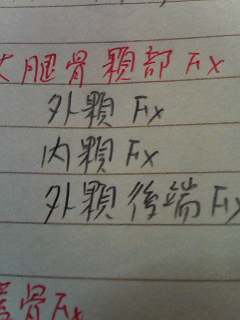 大腿骨顆部Fx
外顆Fx
内顆Fx
外顆後端Fx
骨Fx